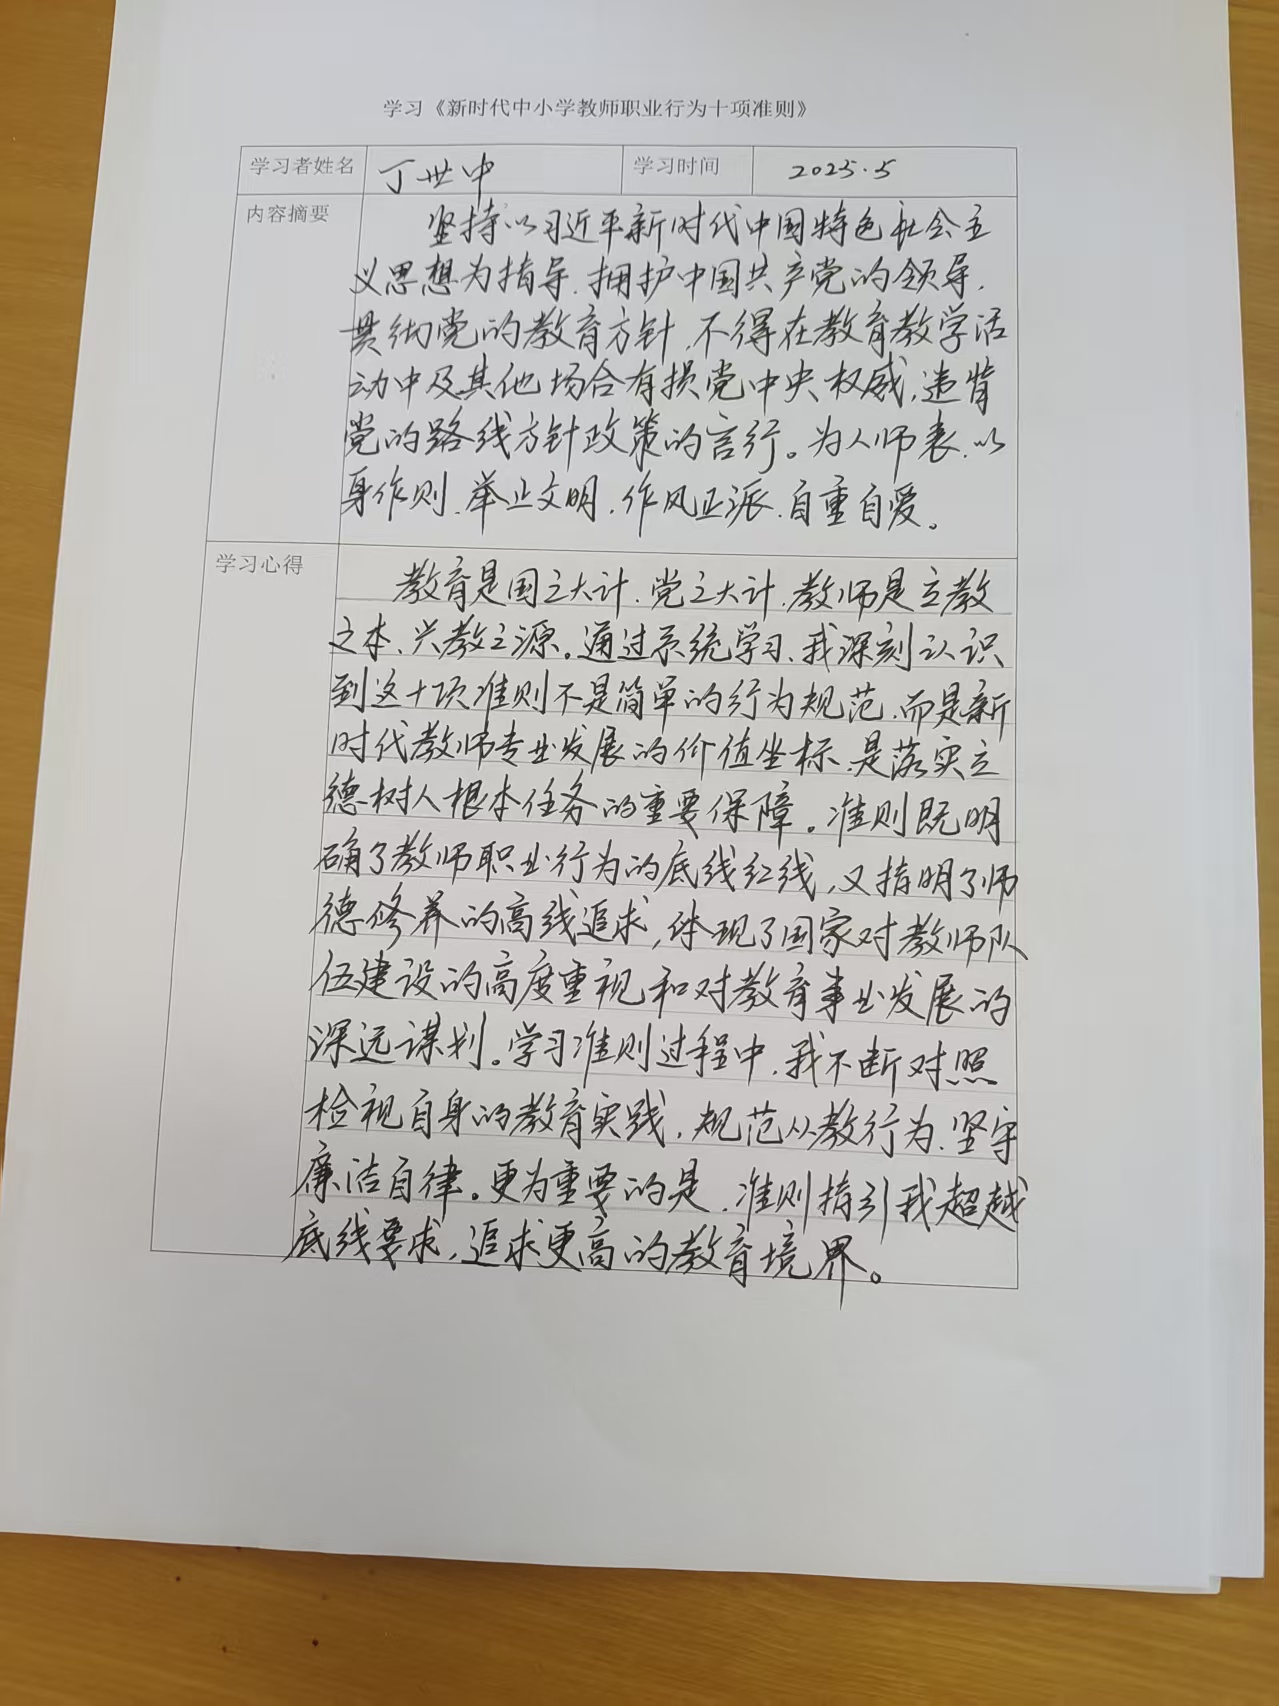 学习《新时代中小学教师职业行为十项准则》
学习者姓名 丁世中 学习时间 2025.5
内容摘要
坚持以习近平新时代中国特色社会主
义思想为指导、拥护中国共产党的领导、
贯彻党的教育方针、不得在教育教学活
动中及其他场合有损党中央权威,违背
党的路线方针政策的言行。为人师表、以
身作则、举止文明、作风正派、自重自爱。
学习心得
教育是国之大计、党之大计、教师是立教
之本、兴教之源。通过系统学习、我深刻认识
到这十项准则不是简单的行为规范、而是新
时代教师专业发展的价值坐标、是落实立
德树人根本任务的重要保障。准则既明
确了教师职业行为的底线红线,又指明了师
德修养的高线追求,体现了国家对教师队
伍建设的高度重视和对教育事业发展的
深远谋划。学习准则过程中、我不断对照
检视自身的教育实践、规范从教行为、坚守
廉洁自律。更为重要的是、准则指引我超越
底线要求、追求更高的教育境界。